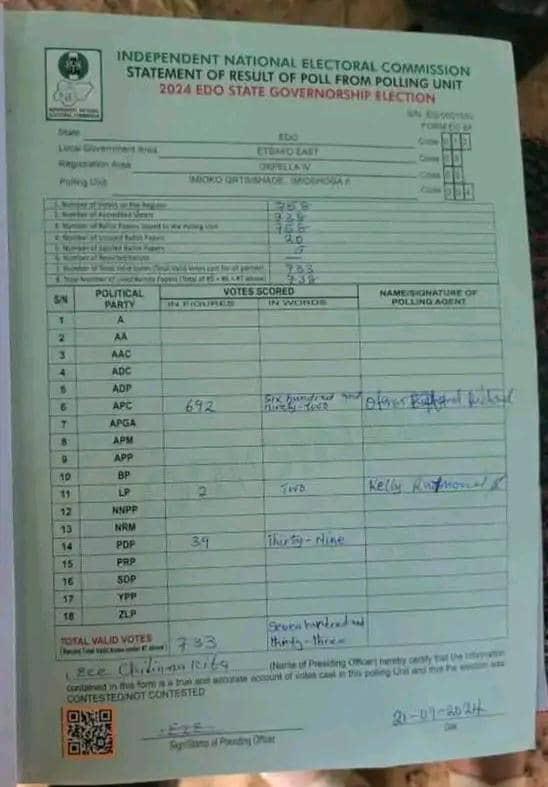 INDEPENDENT NATIONAL ELECTORAL COMMISSION
STATEMENT OF RESULT OF POLL FROM POLLING UNIT
2024 EDO STATE GOVERNORSHIP ELECTION
State EDO Code
Local Government Area ETSAKO EAST Code
Registration Area OKPELLA IV Code
Polling Unit Code
1. Number of Voters on the Register 758
2. Number of Accredited Voters 738
3. Number of Ballot Papers Issued to the Polling Unit 758
4. Number of Unused Ballot Papers 20
5. Number of Spoiled Ballot Papers 5
6. Number of Rejected Ballots —
7. Number of Total Valid Votes (Total Valid Votes cast for all parties) 733
8. Total Number of Used Ballot Papers 738
S/N POLITICAL PARTY VOTES SCORED NAME/SIGNATURE OF POLLING AGENT
IN FIGURES IN WORDS
1 A
2 AA
3 AAC
4 ADC
5 ADP
6 APC 692 Six hundred and ninety-two
7 APGA
8 APM
9 APP
10 BP
11 LP 2 Two Kelly
12 NNPP
13 NRM
14 PDP 39 Thirty-Nine
15 PRP
16 SDP
17 YPP
18 ZLP
TOTAL VALID VOTES 733 Seven hundred and thirty-three
I, (Name of Presiding Officer) hereby certify that the information
contained in this form is a true and accurate account of votes cast in this polling Unit and that the election was
CONTESTED/NOT CONTESTED
21-09-2024
Sign/Stamp of Presiding Officer Date